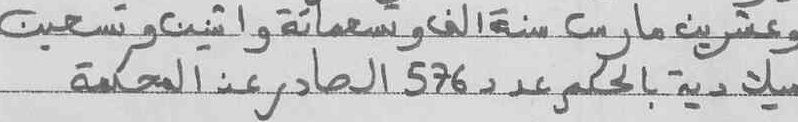 وعشرين مارس سنة الف وتسعمائة واثنين وتسعين
ميلادية بالحكم عدد 576 الصادر عن المحكمة